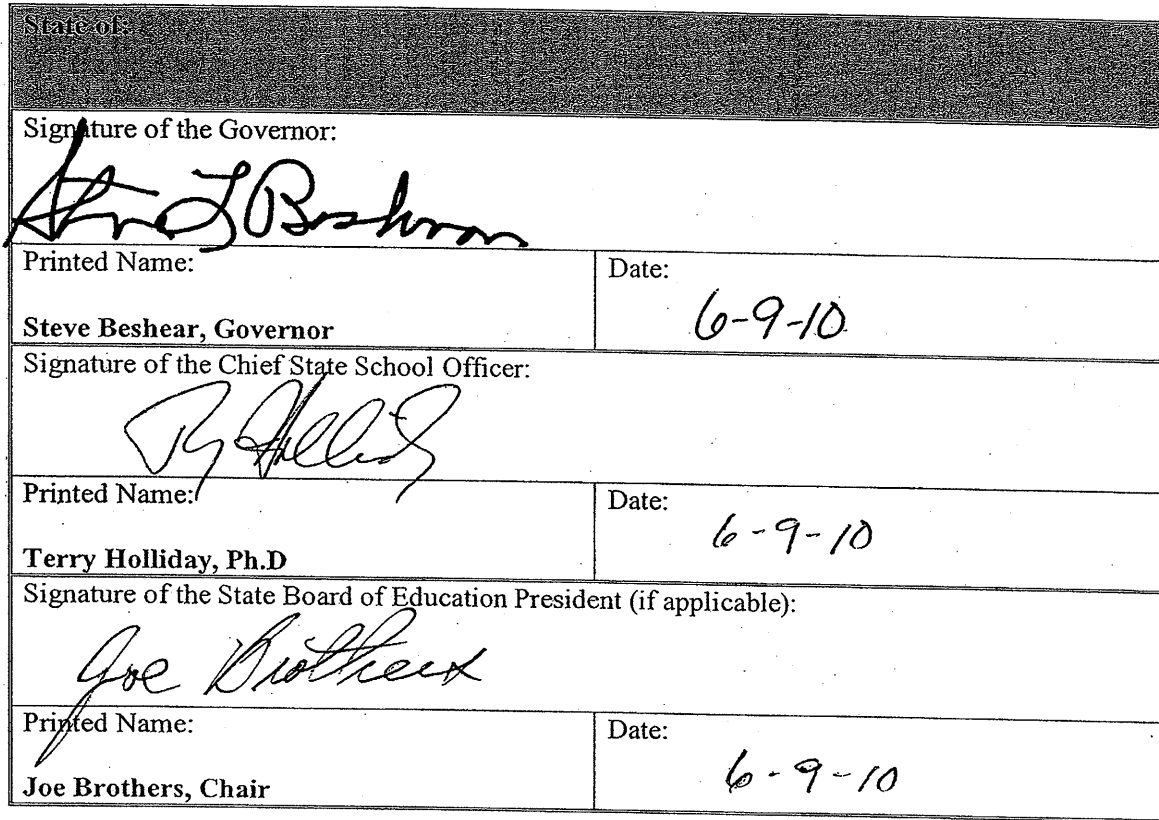 State of:
Signature of the Governor:
Steven L Beshear
Printed Name:
Steve Beshear, Governor
Date:
6-9-10
Signature of the Chief State School Officer:
Terry Holliday
Printed Name:
Terry Holliday, Ph.D
Date:
6-9-10
Signature of the State Board of Education President (if applicable):
Joe Brothers
Printed Name:
Joe Brothers, Chair
Date:
6-9-10